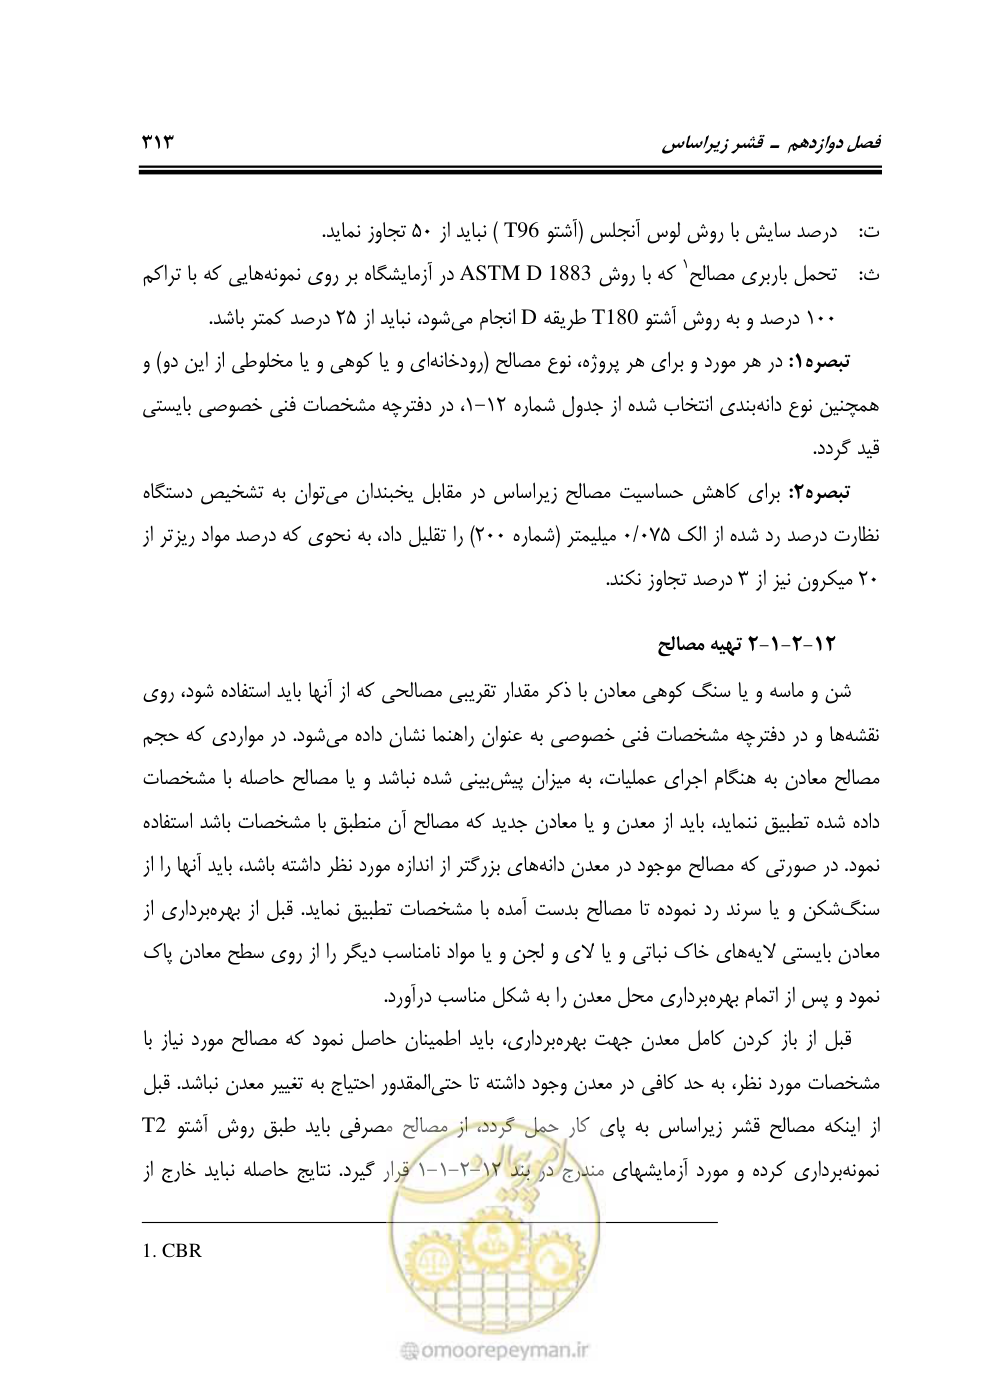 فصل دوازدهم ـ قشر زیراساس ۳۱۳
ت: درصد سایش با روش لوس آنجلس (آشتو T96 ) نباید از ۵۰ تجاوز نماید.
ث: تحمل باربری مصالح۱ که با روش ASTM D 1883 در آزمایشگاه بر روی نمونه‌هایی که با تراکم
۱۰۰ درصد و به روش آشتو T180 طریقه D انجام می‌شود، نباید از ۲۵ درصد کمتر باشد.
تبصره۱: در هر مورد و برای هر پروژه، نوع مصالح (رودخانه‌ای و یا کوهی و یا مخلوطی از این دو) و
همچنین نوع دانه‌بندی انتخاب شده از جدول شماره ۱۲-۱، در دفترچه مشخصات فنی خصوصی بایستی
قید گردد.
تبصره۲: برای کاهش حساسیت مصالح زیراساس در مقابل یخبندان می‌توان به تشخیص دستگاه
نظارت درصد رد شده از الک ۰/۰۷۵ میلیمتر (شماره ۲۰۰) را تقلیل داد، به نحوی که درصد مواد ریزتر از
۲۰ میکرون نیز از ۳ درصد تجاوز نکند.
۱۲-۲-۱-۲ تهیه مصالح
شن و ماسه و یا سنگ کوهی معادن با ذکر مقدار تقریبی مصالحی که از آنها باید استفاده شود، روی
نقشه‌ها و در دفترچه مشخصات فنی خصوصی به عنوان راهنما نشان داده می‌شود. در مواردی که حجم
مصالح معادن به هنگام اجرای عملیات، به میزان پیش‌بینی شده نباشد و یا مصالح حاصله با مشخصات
داده شده تطبیق ننماید، باید از معدن و یا معادن جدید که مصالح آن منطبق با مشخصات باشد استفاده
نمود. در صورتی که مصالح موجود در معدن دانه‌های بزرگتر از اندازه مورد نظر داشته باشد، باید آنها را از
سنگ‌شکن و یا سرند رد نموده تا مصالح بدست آمده با مشخصات تطبیق نماید. قبل از بهره‌برداری از
معادن بایستی لایه‌های خاک نباتی و یا لای و لجن و یا مواد نامناسب دیگر را از روی سطح معادن پاک
نمود و پس از اتمام بهره‌برداری محل معدن را به شکل مناسب درآورد.
قبل از باز کردن کامل معدن جهت بهره‌برداری، باید اطمینان حاصل نمود که مصالح مورد نیاز با
مشخصات مورد نظر، به حد کافی در معدن وجود داشته تا حتی‌المقدور احتیاج به تغییر معدن نباشد. قبل
از اینکه مصالح قشر زیراساس به پای کار حمل گردد، از مصالح مصرفی باید طبق روش آشتو T2
نمونه‌برداری کرده و مورد آزمایشهای مندرج در بند ۱۲-۲-۱-۱ قرار گیرد. نتایج حاصله نباید خارج از
1. CBR
امور پیمان
omoorepeyman.ir